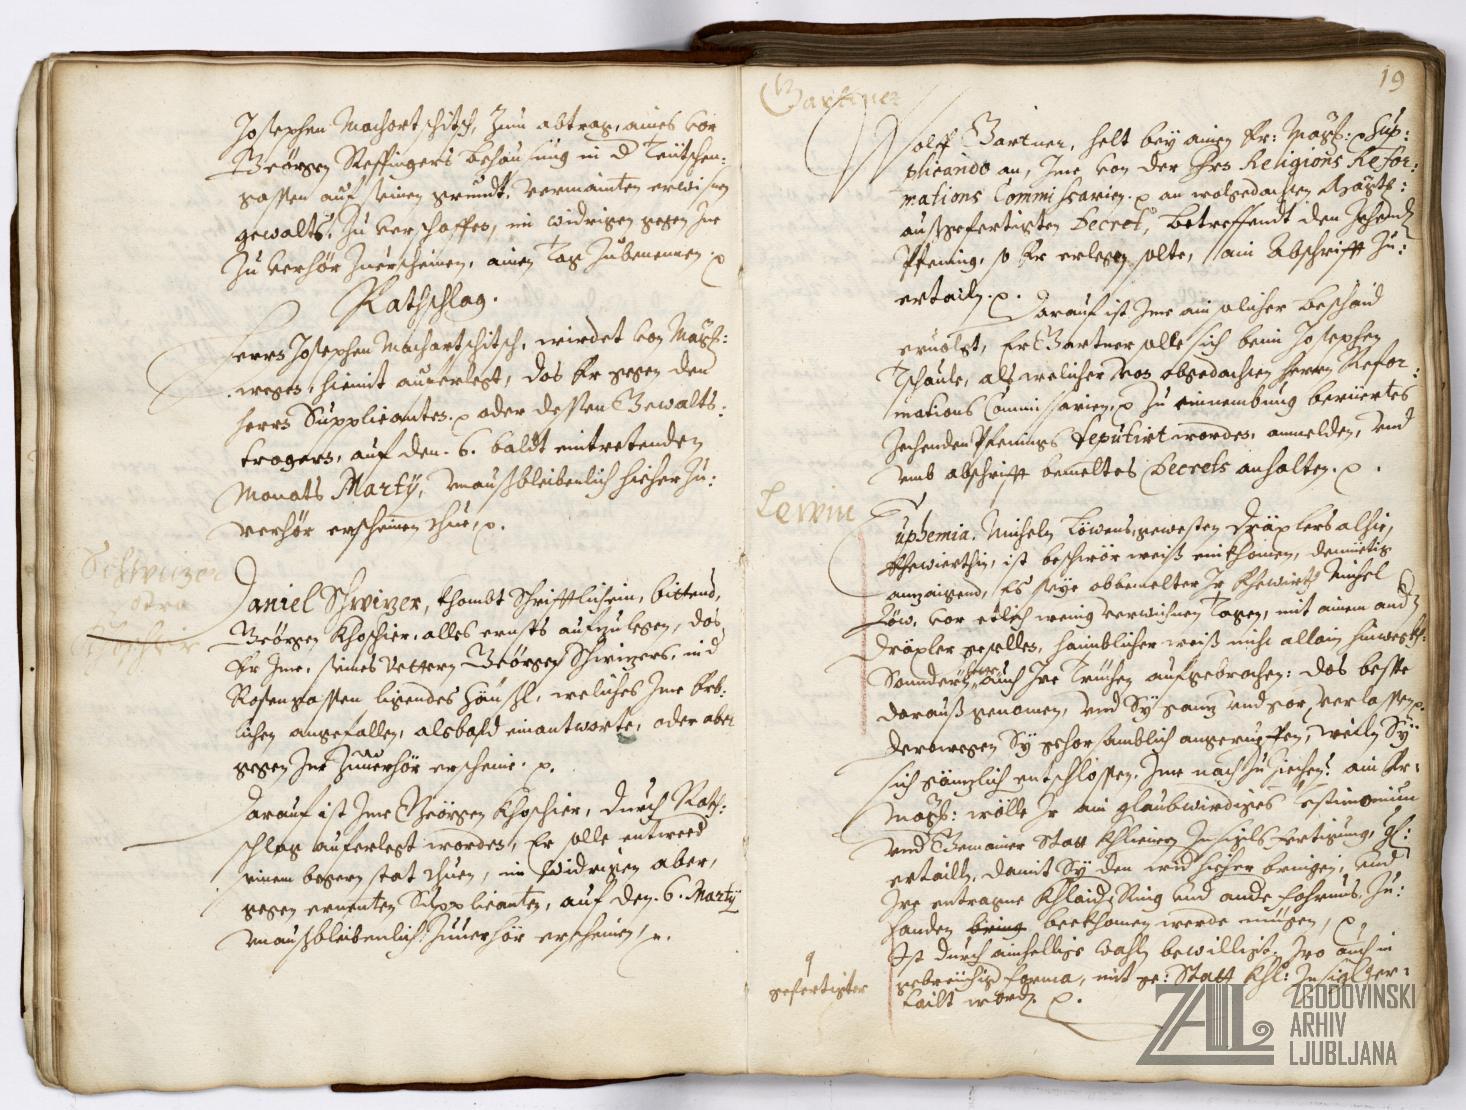 Josephen Machortschitsch, Zum abtrag, aines vor
Geörgen Reffingers behausung in d Teütschen-
gassen auf seinen grundt, vermainten erwisnen
gewalts, Zu verschaffen, im widrigen gegen Ime
Zu verhör Zuerscheinen, ainen Tag Zubenennen.
Rathschlag.
Herrn Josephen Machartschitsch, wirdet von Mag:
wegen, hiemit auferlegt, das Er gegen den
herrn Supplicanten. oder dessen Gewalts:
tragern, auf den. 6. baldt eintretenden
Monats Marty, unaußbleibenlich hieher Zu:
verhör erscheinen thue.
Schwizer
contra
Khoschier
Daniel Schwizer, khombt Schrifftlich ein, bittend,
Geörgen Khoschier, alles ernsts aufzulegen, das
Er Ime, seines Vettern Geörgen Schwizers, in d
Rosengassen ligendes Häußl, welches Ime Erb:
lichen angefallen, alsbald einantworte, oder aber
gegen Ime Zuuerhör erscheine.
Darauf ist Ime Geörgen Khoschier, durch Rath:
schlag auferlegt worden, Er solle entweder
seinem begern stat thuen, im widrigen aber,
gegen ernenten Supplicanten, auf den. 6. Marty
unaußbleibenlich Zuuerhör erscheinen.
19
Gartner
Wolff Gartner, helt bey ainem Er: Mag: Sup:
plicando an, Ime von der Hrn Religions Refor:
mations Commissarien. an wolgedachten Mag:
außgefertigten Decret, betreffendt den Zehend
Pfening, so Er erlegen solte, ain Abschrifft Zu:
ertailn.
Darauf ist Ime ain solicher beschaid
eruolgt, Er Gartner solle sich beim Josephen
Tschaule, als welicher von obgedachten herrn Refor:
mations Commissarien, Zu einnembung berüertes
Zechenden Pfenings deputirt worden, anmelden, und
umb abschrifft bemeltes Decrets anhalten.
Lewin
Euphemia. Micheln Löwens, gewesten Dräxlers alhie,
Ehewierthin, ist beschwär weiß einkhomen, demüetig
anzaigend, Es seye obbemelter Ir Ehewirth Michel
Löw. vor etlich wenig verwichnen Tagen, mit ainem and
Dräxler gesellen, haimblicher weiß nicht allain hinwegkh:
Sonndern auch Ire Truhen aufgebrochen: das beste
darauß genomen, und Sy ganz verlassen.
derowegen Sy gehorsamblich angerueffen, weiln Sy
sich gänzlich entschlossen, Ime nach Zu ziechen: ain Er:
Mag: wölle Ir ain glaubwirdiges Testimonium
und Gemainer Statt Khlienen Insigls fertigung,
ertailn, damit Sy den wid hieher bringen, und
Ire entragne Khlaid, Ring und ande fahrnus, Zu:
handen bring beekhomen werde mügen,
Ist durch ainhellige Wahl bewilligt, Iro auch in
gebreüchig forma, mit ge: Statt Khl: Insigl er:
tailt word.
9
gefertigter
ZAL
ZGODOVINSKI
ARHIV
LJUBLJANA